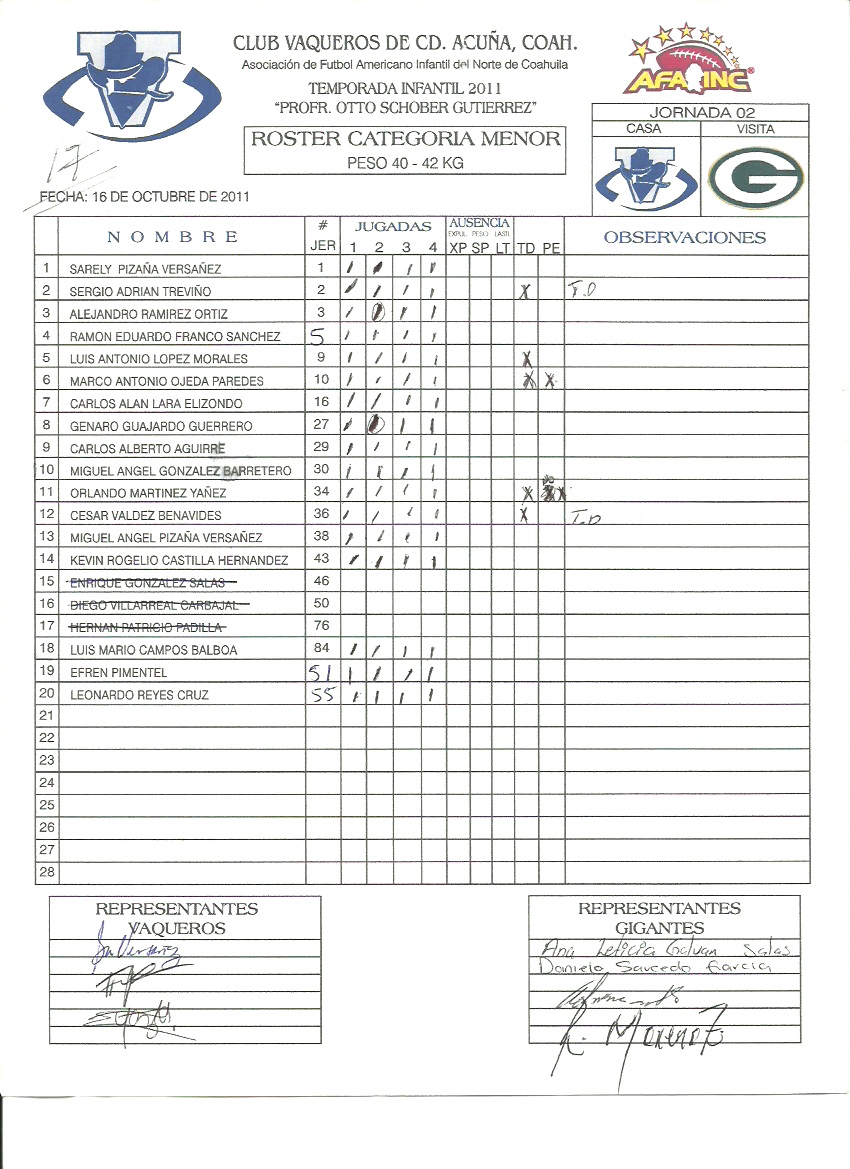 CLUB VAQUEROS DE CD. ACUÑA, COAH.
Asociación de Futbol Americano Infantil del Norte de Coahuila
TEMPORADA INFANTIL 2011
"PROFR. OTTO SCHOBER GUTIERREZ"
ROSTER CATEGORIA MENOR
PESO 40 - 42 KG
AFAINC®
JORNADA 02
CASA VISITA
V G
17
FECHA: 16 DE OCTUBRE DE 2011
NOMBRE # JER JUGADAS 1 2 3 4 AUSENCIA EXPUL PESO LASTI XP SP LT TD PE OBSERVACIONES
1 SARELY PIZAÑA VERSAÑEZ 1 / / / /
2 SERGIO ADRIAN TREVIÑO 2 / / / / X T.D
3 ALEJANDRO RAMIREZ ORTIZ 3 / / / /
4 RAMON EDUARDO FRANCO SANCHEZ 5 / / / /
5 LUIS ANTONIO LOPEZ MORALES 9 / / / / X
6 MARCO ANTONIO OJEDA PAREDES 10 / / / / X X
7 CARLOS ALAN LARA ELIZONDO 16 / / / /
8 GENARO GUAJARDO GUERRERO 27 / / / /
9 CARLOS ALBERTO AGUIRRE 29 / / / /
10 MIGUEL ANGEL GONZALEZ BARRETERO 30 / / / /
11 ORLANDO MARTINEZ YAÑEZ 34 / / / / X X
12 CESAR VALDEZ BENAVIDES 36 / / / / X T.D
13 MIGUEL ANGEL PIZAÑA VERSAÑEZ 38 / / / /
14 KEVIN ROGELIO CASTILLA HERNANDEZ 43 / / / /
15 ENRIQUE GONZALEZ SALAS 46
16 DIEGO VILLARREAL CARBAJAL 50
17 HERNAN PATRICIO PADILLA 76
18 LUIS MARIO CAMPOS BALBOA 84 / / / /
19 EFREN PIMENTEL 51 / / / /
20 LEONARDO REYES CRUZ 55 / / / /
21
22
23
24
25
26
27
28
REPRESENTANTES
VAQUEROS
REPRESENTANTES
GIGANTES
Ana Leticia Galvan Salas
Daniela Saucedo Garcia